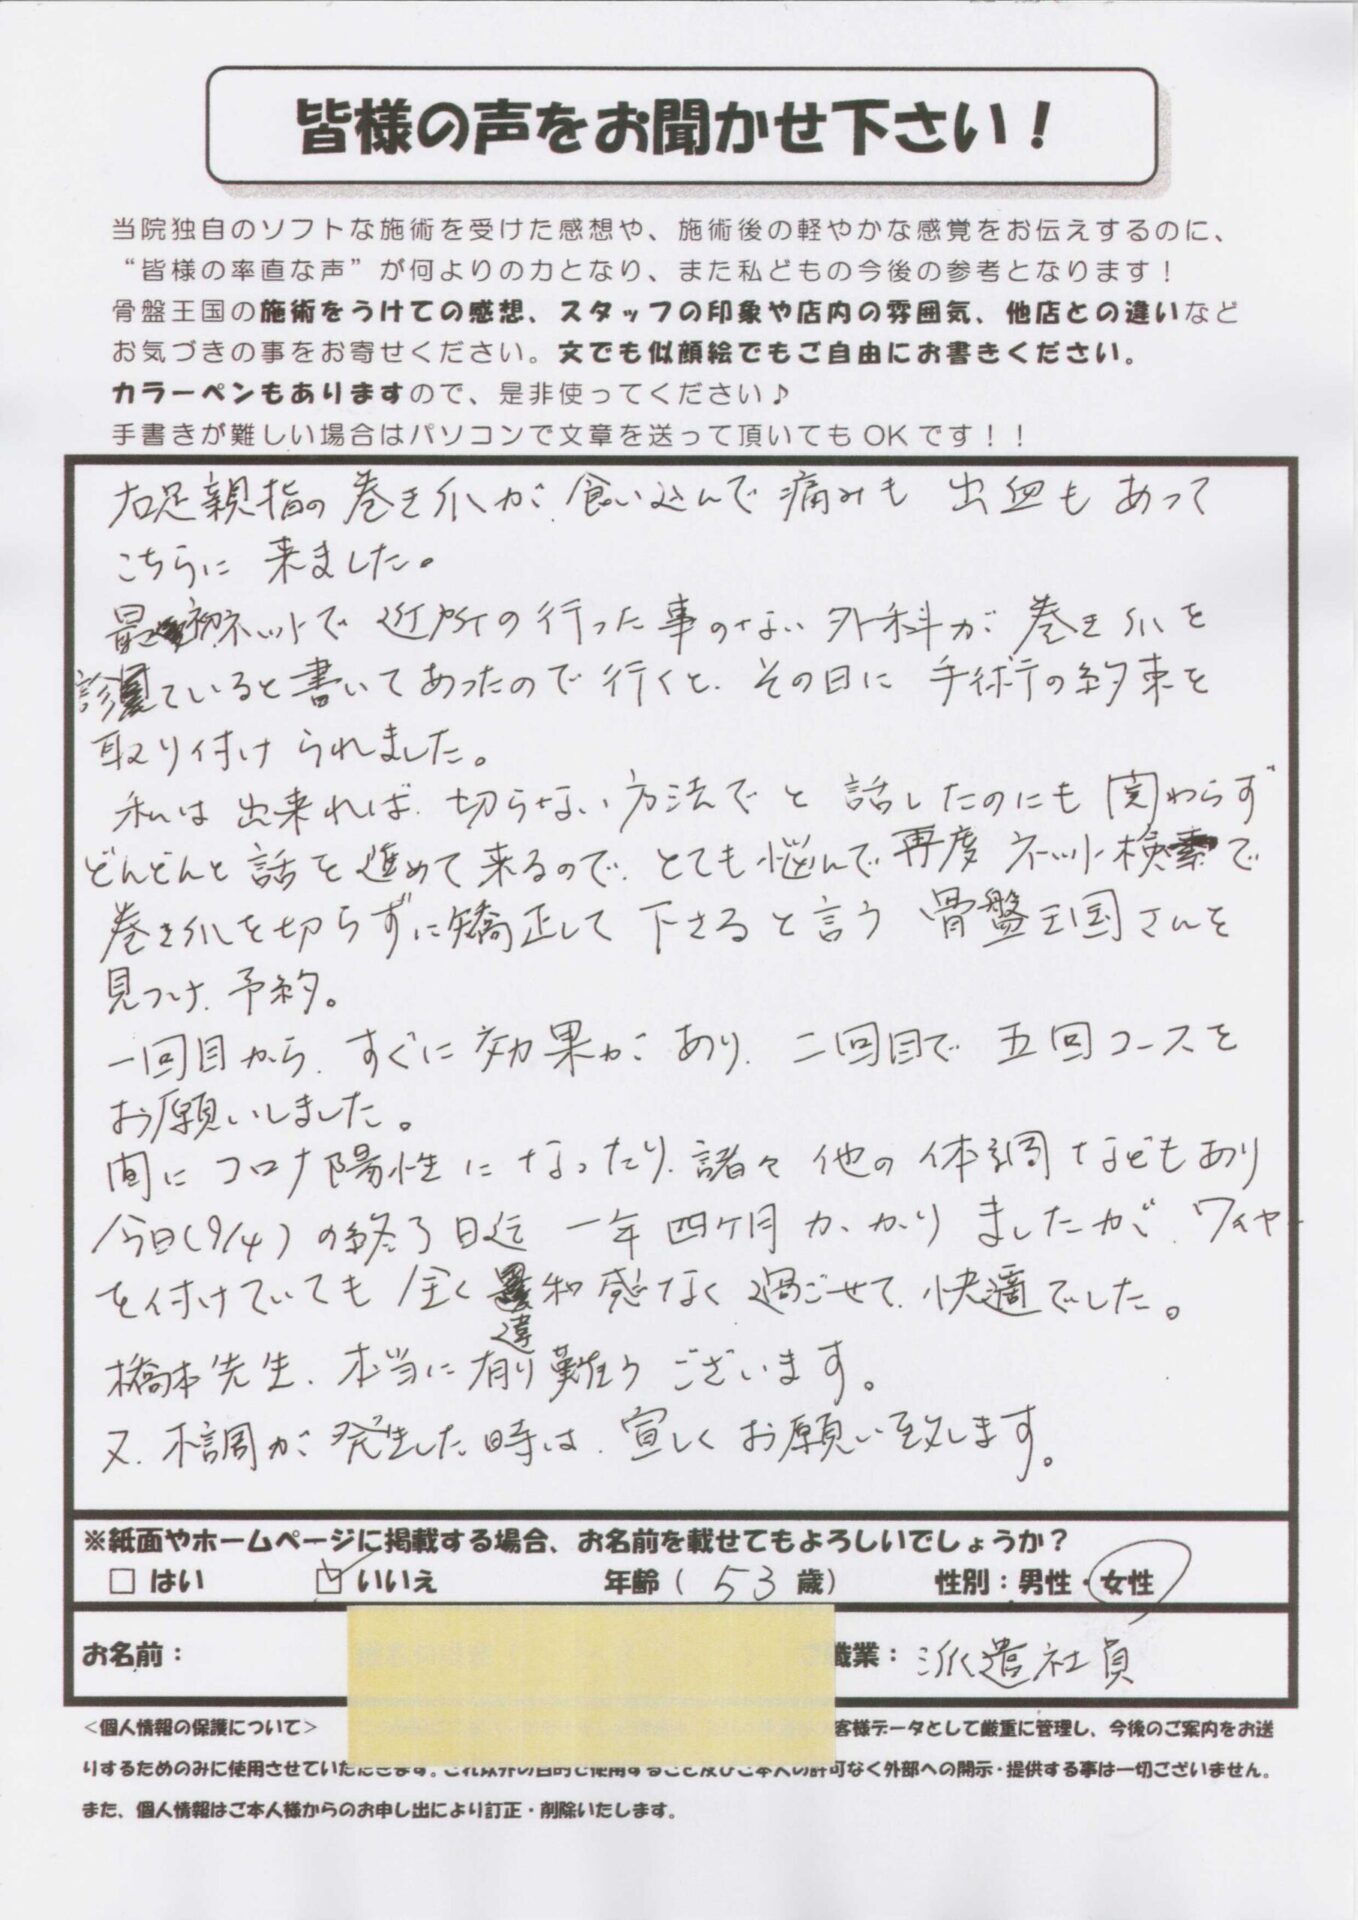 皆様の声をお聞かせ下さい！
当院独自のソフトな施術を受けた感想や、施術後の軽やかな感覚をお伝えするのに、
“皆様の率直な声”が何よりの力となり、また私どもの今後の参考となります！
骨盤王国の施術をうけての感想、スタッフの印象や店内の雰囲気、他店との違いなど
お気づきの事をお寄せください。文でも似顔絵でもご自由にお書きください。
カラーペンもありますので、是非使ってください♪
手書きが難しい場合はパソコンで文章を送って頂いてもOKです！！
右足親指の巻き爪が、食い込んで痛みも出血もあって
こちらに来ました。
最初ネットで近所の行った事のない外科が巻き爪を
診ていると書いてあったので行くと、その日に手術の約束を
取り付けられました。
私は出来れば、切らない方法でと話したのにも関わらず
どんどんと話を進めて来るので、とても悩んで再度ネット検索で
巻き爪を切らずに矯正して下さると言う骨盤王国さんを
見つけ、予約。
一回目から、すぐに効果があり、二回目で五回コースを
お願いしました。
間にコロナ陽性になったり、諸々他の体調などもあり
今日(9/4)の終了日迄一年四ヶ月かかりましたが、ワイヤー
を付けていても全く違和感なく過ごせて、快適でした。
橋本先生、本当に有り難うございます。
又、不調が発生した時は、宜しくお願い致します。
※紙面やホームページに掲載する場合、お名前を載せてもよろしいでしょうか？
□はい ☑いいえ 年齢（53歳） 性別：男性・女性
お名前： 職業：派遣社員
<個人情報の保護について> 客様データとして厳重に管理し、今後のご案内をお送
りするためのみに使用させていただきます。これ以外の目的で使用すること及びご本人の許可なく外部への開示・提供する事は一切ございません。
また、個人情報はご本人様からのお申し出により訂正・削除いたします。